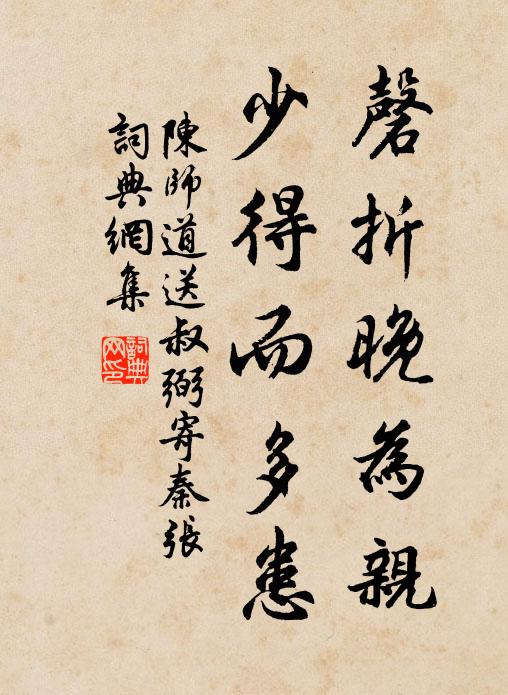 磬折晚為親
少得而多患
陳師道送叔弼寄秦張
詞典網集
詞典網印